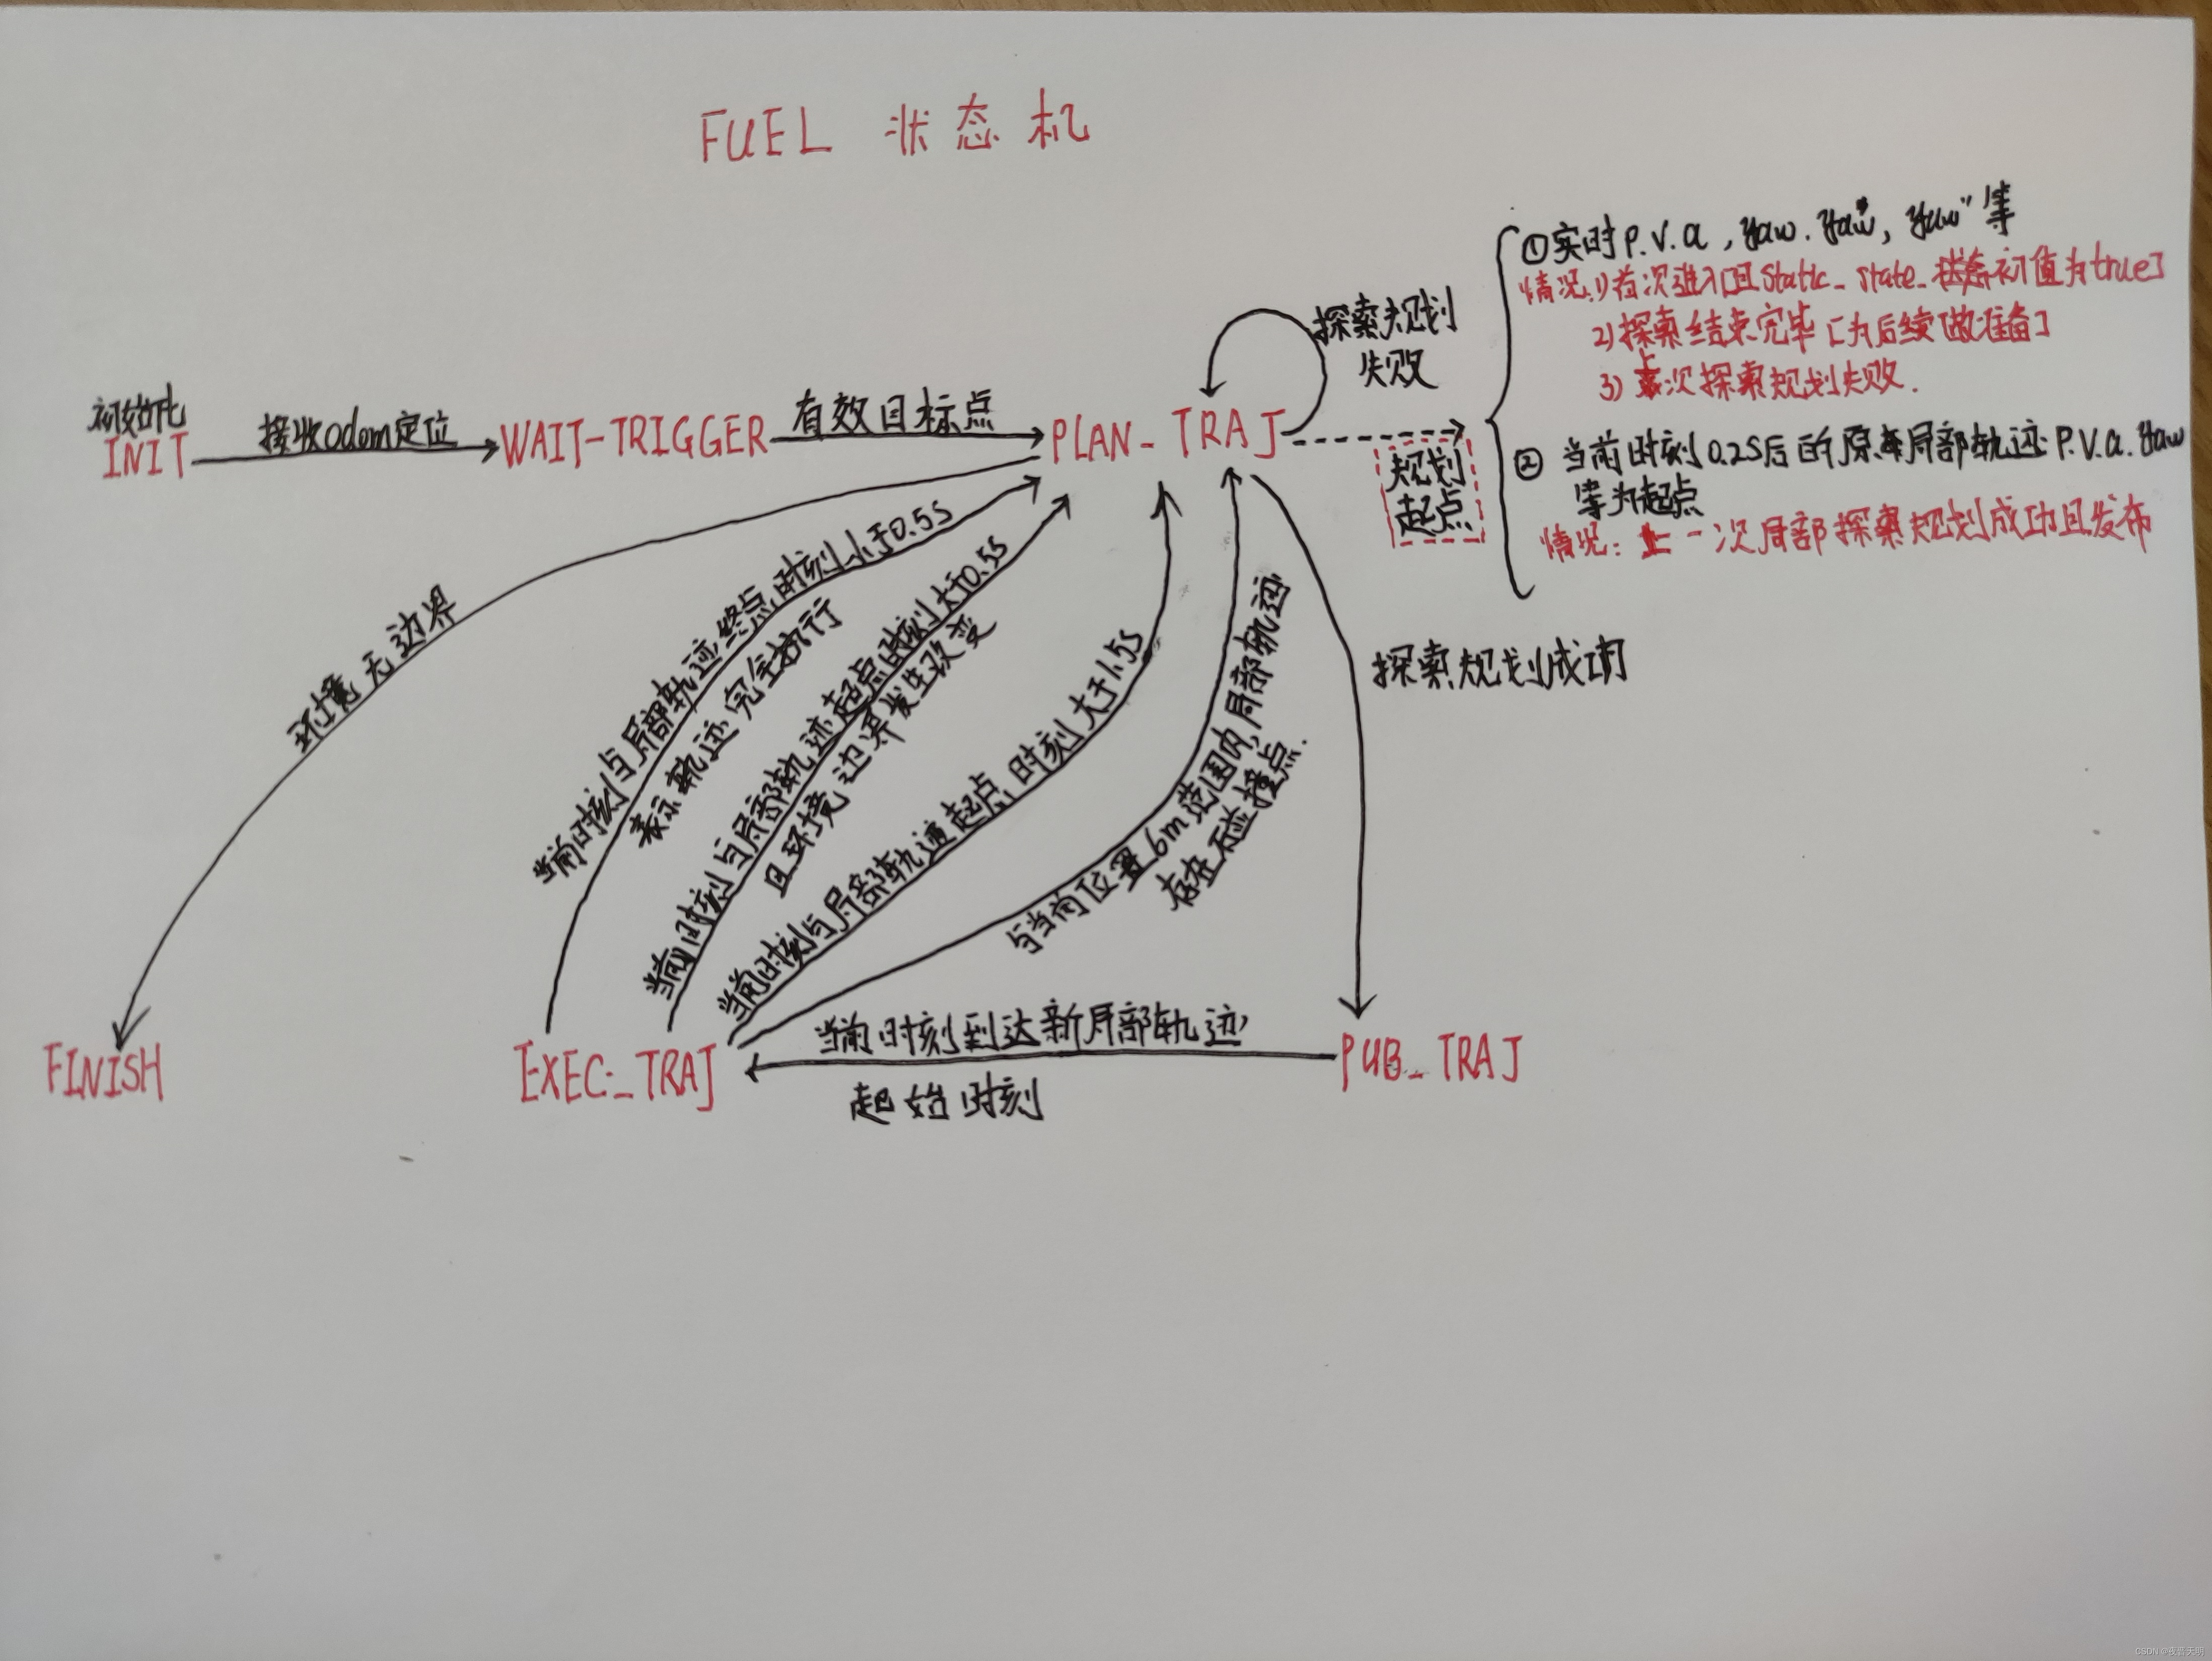 FUEL 状态机
①实时 P.V.a, yaw. yaw', yaw'' 等
情况:1)首次进入[且static_state_状态初值为true]
2)探索结束完毕[为后续做准备]
3)上次探索规划失败.
探索规划
失败
初始化
INIT
接收odom定位
WAIT-TRIGGER
有效目标点
PLAN_TRAJ
规划
起点
②当前时刻0.2S后的原本局部轨迹P.V.a.yaw
等为起点
情况:上一次局部探索规划成功且发布
环境无边界
当前时刻与局部轨迹终点时刻小于0.5S
表示轨迹完全执行
当前时刻与局部轨迹起点时刻大于0.5S
且环境边界发生改变
当前时刻与局部轨迹起点时刻大于1.5S
与当前位置6m范围内,局部轨迹
存在碰撞点.
探索规划成功
FINISH
EXEC_TRAJ
当前时刻到达新局部轨迹
起始时刻
PUB_TRAJ
CSDN @夜苍天明